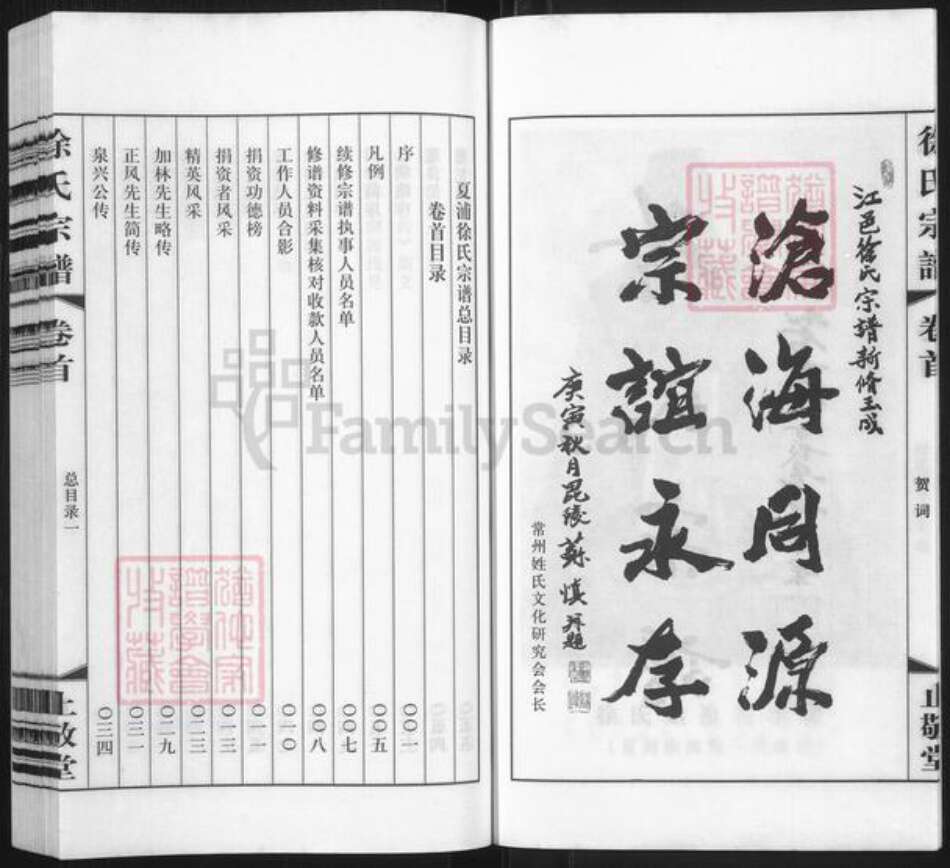 贺词
止敬堂
江邑徐氏宗谱新修玉成
滄海同源
宗誼永存
庚寅秋月毘陵苏慎并题
常州姓氏文化研究会会长
夏浦徐氏宗谱总目录
卷首目录
序 〇〇一
凡例 〇〇五
续修宗谱执事人员名单 〇〇七
修谱资料采集核对收款人员名单 〇〇八
工作人员合影 〇一〇
捐资功德榜 〇一一
捐资者风采 〇一三
精英风采 〇二三
加林先生略传 〇二九
正风先生简传 〇三一
泉兴公传 〇三四
徐氏宗谱 卷首
总目录一
止敬堂
FamilySearch